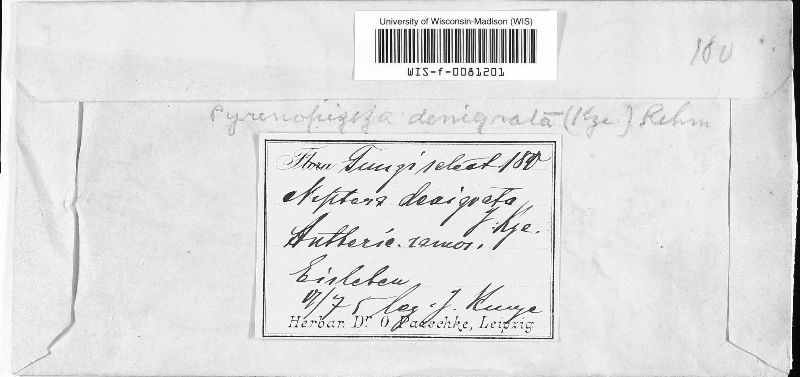 University of Wisconsin-Madison (WIS)
WIS-f-0081201
180
Pyrenopeziza denigrata (Kze.) Rehm
Flora Fungi select. 180
Niptera denigrata
J. Kze.
Antheric. ramos.
Eisleben
7/75 leg. J. Kunze
Herbar. Dr. O. Pazschke, Leipzig